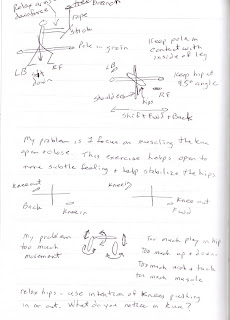 rope
stick
Pole in groin
Keep pole in
contact with
inside of leg
LB
RF
sit
down
LB
Keep hip at
45° angle
shoulders
hips
RF
Shift Fwd + Back
My problem is I focus on muscling the knee
open + close. This exercise helps open to
more subtle feeling + help stabilize the hips
Knee out
Knee in
Back
Knee in
Knee out
Fwd
My problem
too much
movement
Too much play in hip
Too much up + down
Too much muscle
relax hips - use intention of knees pushing
in or out. What do you notice in knee?